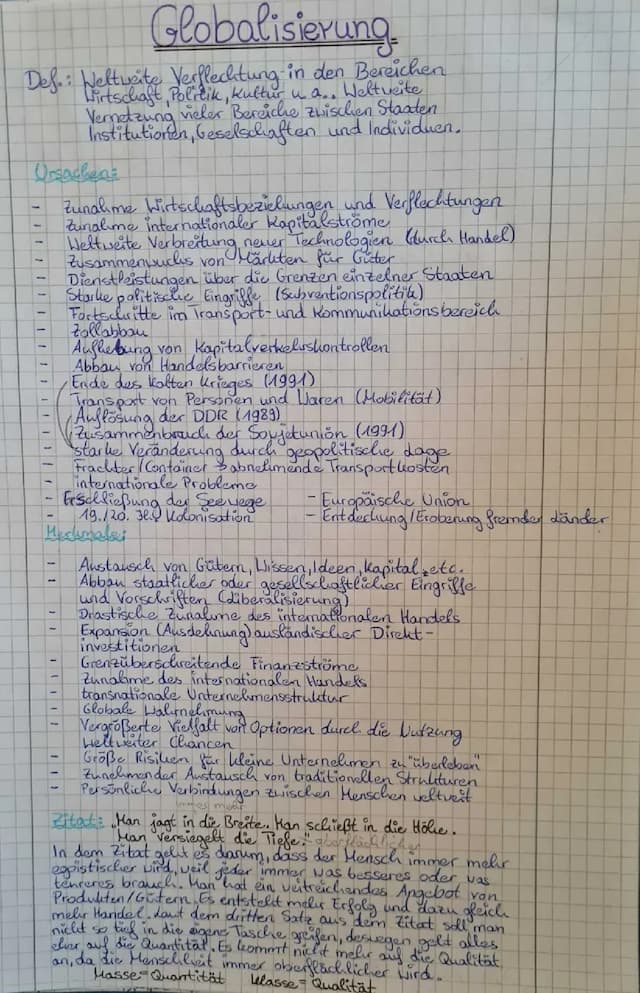 Globalisierung
Def.: Weltweite Verflechtung in den Bereichen
Wirtschaft, Politik, Kultur u.a.. Weltweite
Vernetzung vieler Bereiche zwischen Staaten
Institutionen, Geselschaften und Individuen.
Ursachen:
- Zunahme Wirtschaftsbeziehungen und Verflechtungen
- Zunahme internationaler Kapitalströme
- Weltweite Verbreitung neuer Technologien (durch Handel)
- Zusammenwuchs von Märkten für Güter
- Dienstleistungen über die Grenzen einzelner Staaten
- Starke politische Eingriffe (Subventionspolitik)
- Fortschritte im Transport- und Kommunikationsbereich
- Zollabbau
- Aufhebung von Kapitalverkehrskontrollen
- Abbau von Handelsbarrieren
- Ende des Kalten Krieges (1991)
- Transport von Personen und Waren (Mobilität)
- Auflösung der DDR (1989)
- Zusammenbruch der Sowjetunion (1991)
- starke Veränderung durch geopolitische Lage
- Frachter/Container → abnehmende Transportkosten
- internationale Probleme
- Erschließung der Seewege - Europäische Union
- 19./20. Jh. Kolonisation - Entdeckung/Eroberung fremder Länder
Merkmale:
- Austausch von Gütern, Wissen, Ideen, Kapital, etc.
- Abbau staatlicher oder gesellschaftlicher Eingriffe
und Vorschriften (Liberalisierung)
- Drastische Zunahme des internationalen Handels
- Expansion (Ausdehnung) ausländischer Direkt-
investitionen
- Grenzüberschreitende Finanzströme
- Zunahme des internationalen Handels
- transnationale Unternehmensstruktur
- Globale Wahrnehmung
- Vergrößerte Vielfalt von Optionen durch die Nutzung
weltweiter Chancen
- Größe Risiken für kleine Unternehmen zu "überleben"
- Zunehmender Austausch von traditionellen Strukturen
- Persönliche Verbindungen zwischen Menschen weltweit
immer mehr
Zitat: „Man jagt in die Breite. Man schießt in die Höhe.
Man versiegelt die Tiefe." oberflächlicher
In dem Zitat geht es darum, dass der Mensch immer mehr
egoistischer wird, weil jeder immer was besseres oder was
teureres brauch. Man hat ein weitreichendes Angebot von
Produkten/Gütern. Es entsteht mehr Erfolg und dazu gleich
mehr Handel. Laut dem dritten Satz aus dem Zitat soll man
nicht so tief in die eigene Tasche greifen, deswegen geht alles
eher auf die Quantität. Es kommt nicht mehr auf die Qualität
an, da die Menschheit immer oberflächlicher wird.
Masse = Quantität Klasse = Qualität